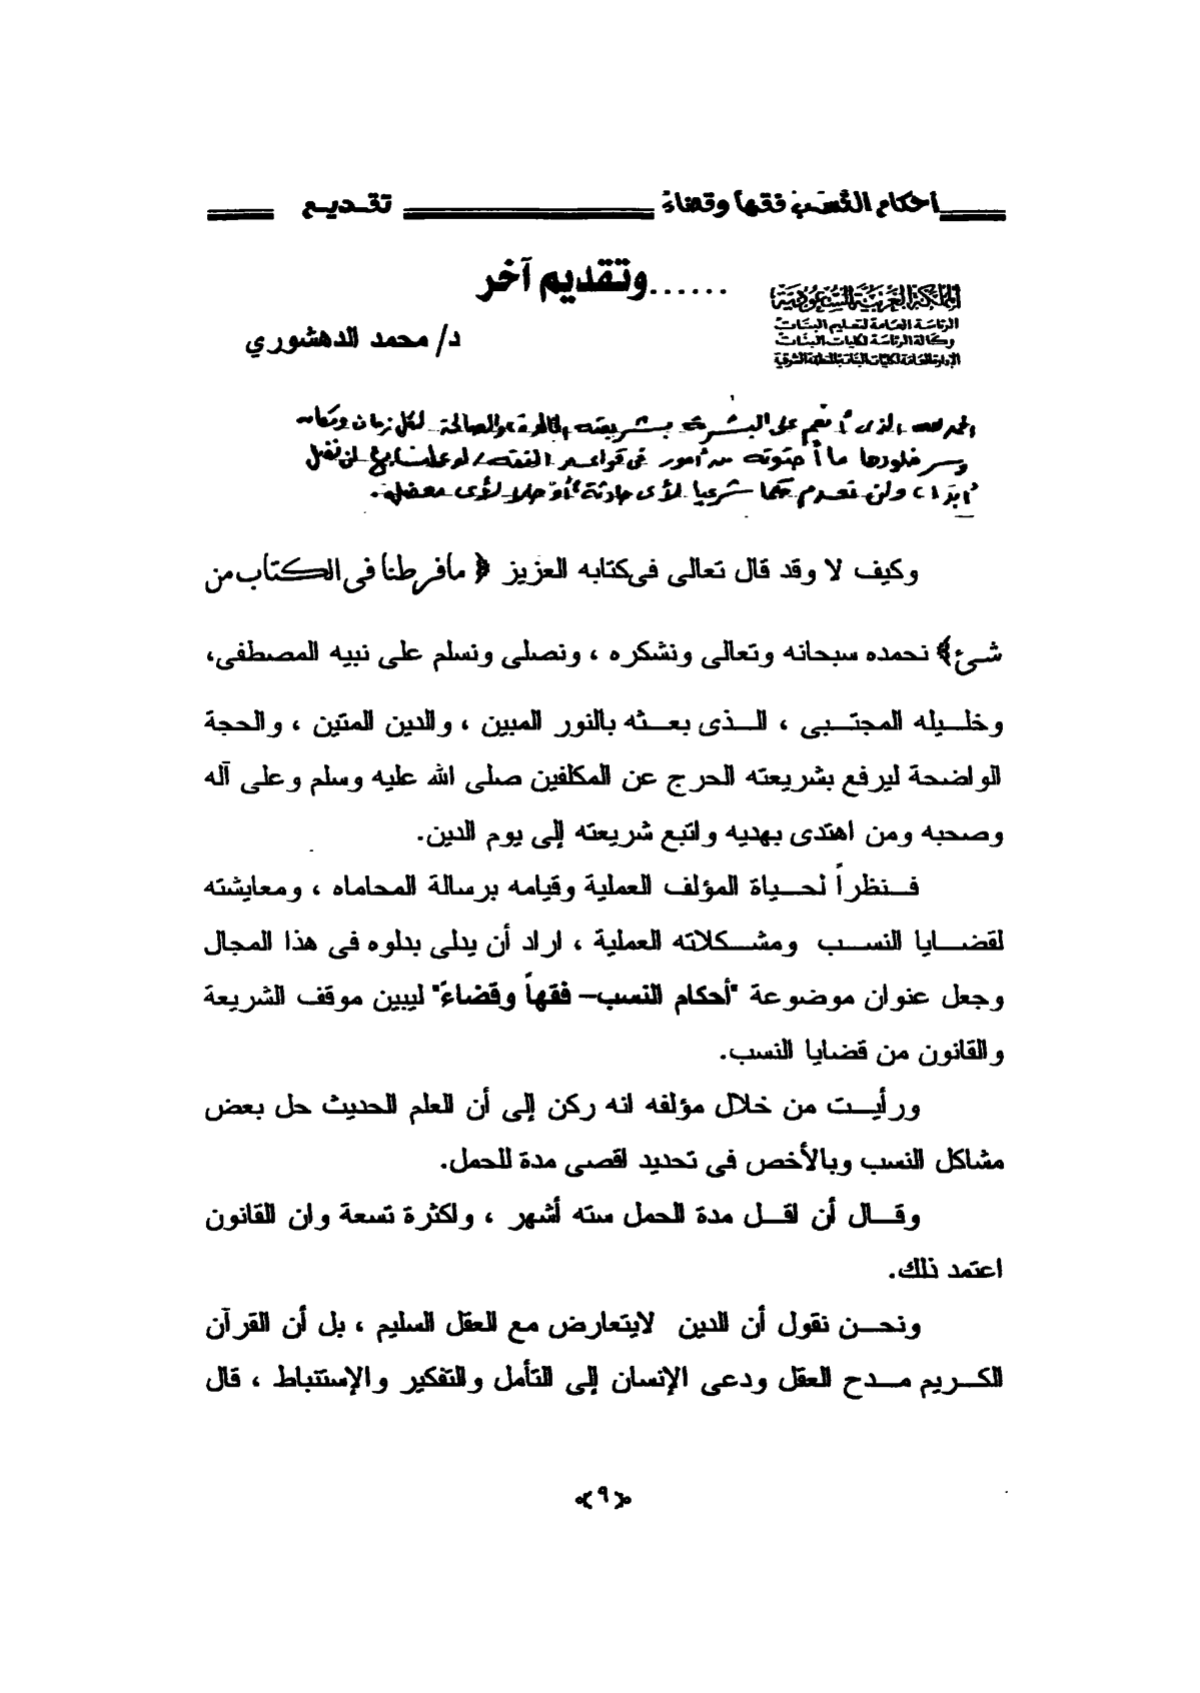 أحكام النسب فقهاً وقضاءً تقديم
......وتقديم آخر
المملكة العربية السعودية
الرئاسة العامة لتعليم البنات
وكالة الرئاسة لكليات البنات
الإدارة العامة لكليات البنات بالمنطقة الشرقية
د/ محمد الدهشوري
الحمد لله الذى أنعم على البشرية بشريعته الخالدة والصالحة لكل زمان ومكان
وسر خلودها ما أحتوته من أمور فى قواعد الفقه
أبدا، ولن تعدم حكما شرعيا لأى حادثة أو حلا لأى معضلة.
وكيف لا وقد قال تعالى فى كتابه العزيز ﴿ مافرطنا فى الكتاب من
شئ﴾ نحمده سبحانه وتعالى ونشكره ، ونصلى ونسلم على نبيه المصطفى،
وخليله المجتبى ، الذى بعثه بالنور المبين ، والدين المتين ، والحجة
الواضحة ليرفع بشريعته الحرج عن المكلفين صلى الله عليه وسلم وعلى آله
وصحبه ومن اهتدى بهديه واتبع شريعته إلى يوم الدين.
فنظراً لحياة المؤلف العملية وقيامه برسالة المحاماه ، ومعايشته
لقضايا النسب ومشكلاته العملية ، اراد أن يدلى بدلوه فى هذا المجال
وجعل عنوان موضوعة "أحكام النسب– فقهاً وقضاءً" ليبين موقف الشريعة
والقانون من قضايا النسب.
ورأيت من خلال مؤلفه انه ركن إلى أن العلم الحديث حل بعض
مشاكل النسب وبالأخص فى تحديد اقصى مدة للحمل.
وقال أن اقل مدة الحمل سته أشهر ، واكثرة تسعة وان القانون
اعتمد ذلك.
ونحن نقول أن الدين لايتعارض مع العقل السليم ، بل أن القرآن
الكريم مدح العقل ودعى الإنسان إلى التأمل والتفكير والإستنباط ، قال
﴿٩﴾